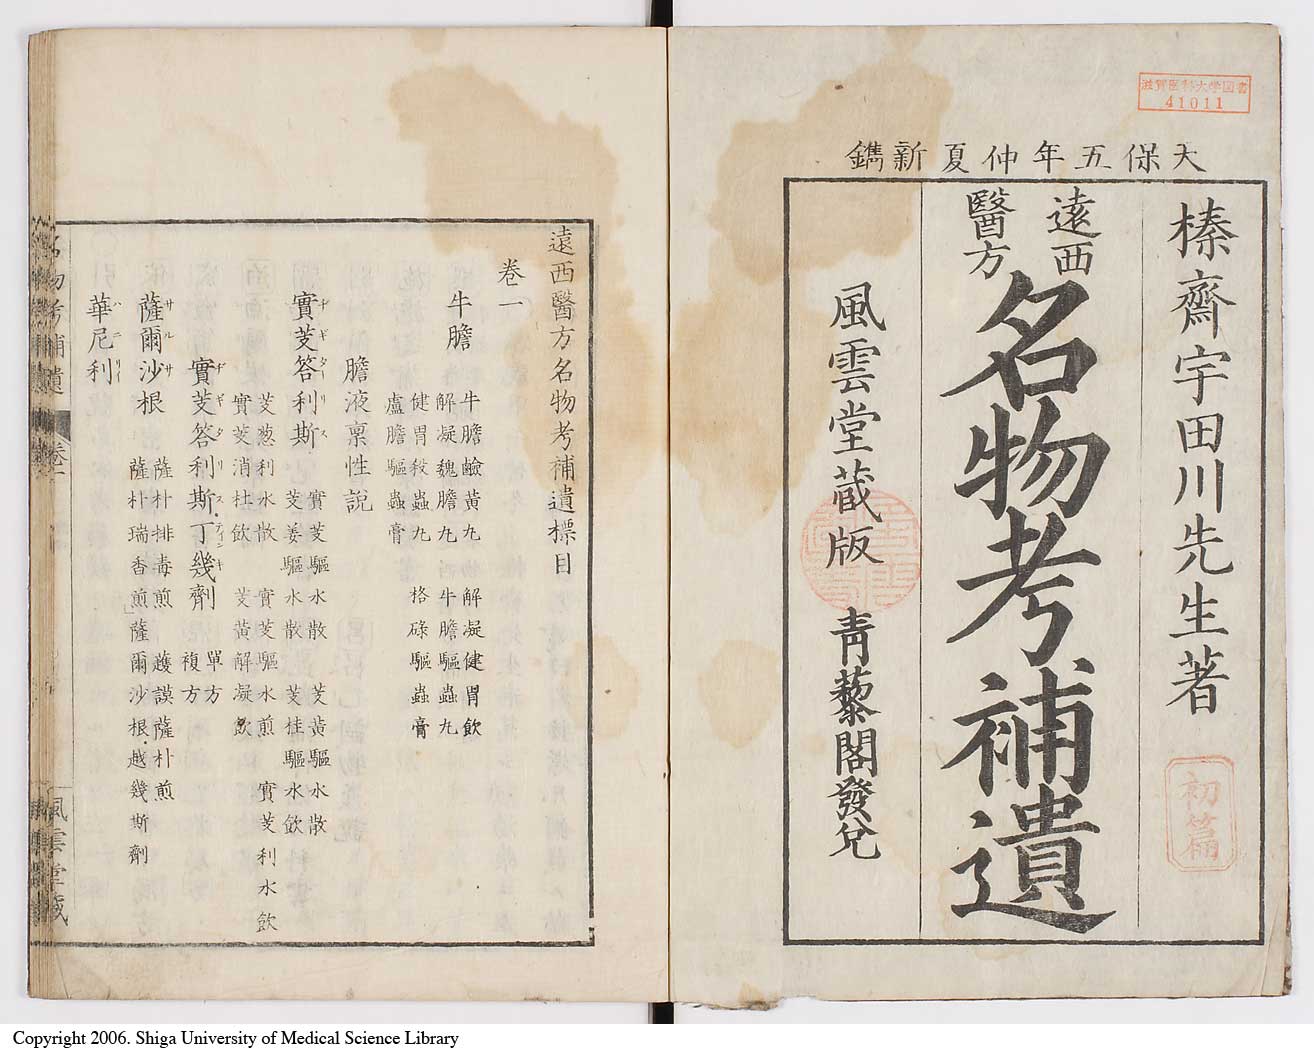 滋賀医科大学図書
41011
大保五年仲夏新鐫
榛齋宇田川先生著
初篇
遠西
醫方
名物考補遺
風雲堂蔵版　青藜閣發兌
遠西醫方名物考補遺標目
卷一
牛膽　牛膽鹼黄丸　解凝健胃飲
解凝魏膽丸　牛膽驅蟲丸
健胃殺蟲丸　格碌驅蟲膏
盧膽驅蟲膏
膽液稟性説
實芰答利斯　實芰驅水散　芰黄驅水散
芰姜驅水散　芰桂驅水飲
芰葱利水散　實芰驅水煎　實芰利水飲
實芰消杜飲　芰黄解凝飲
實芰答利斯丁幾劑　單方
複方
薩爾沙根　薩朴排毒煎　護謨薩朴煎
薩朴瑞香煎　薩爾沙根越幾斯劑
華尼利
名物考補遺　卷一　風雲堂蔵
Copyright 2006. Shiga University of Medical Science Library